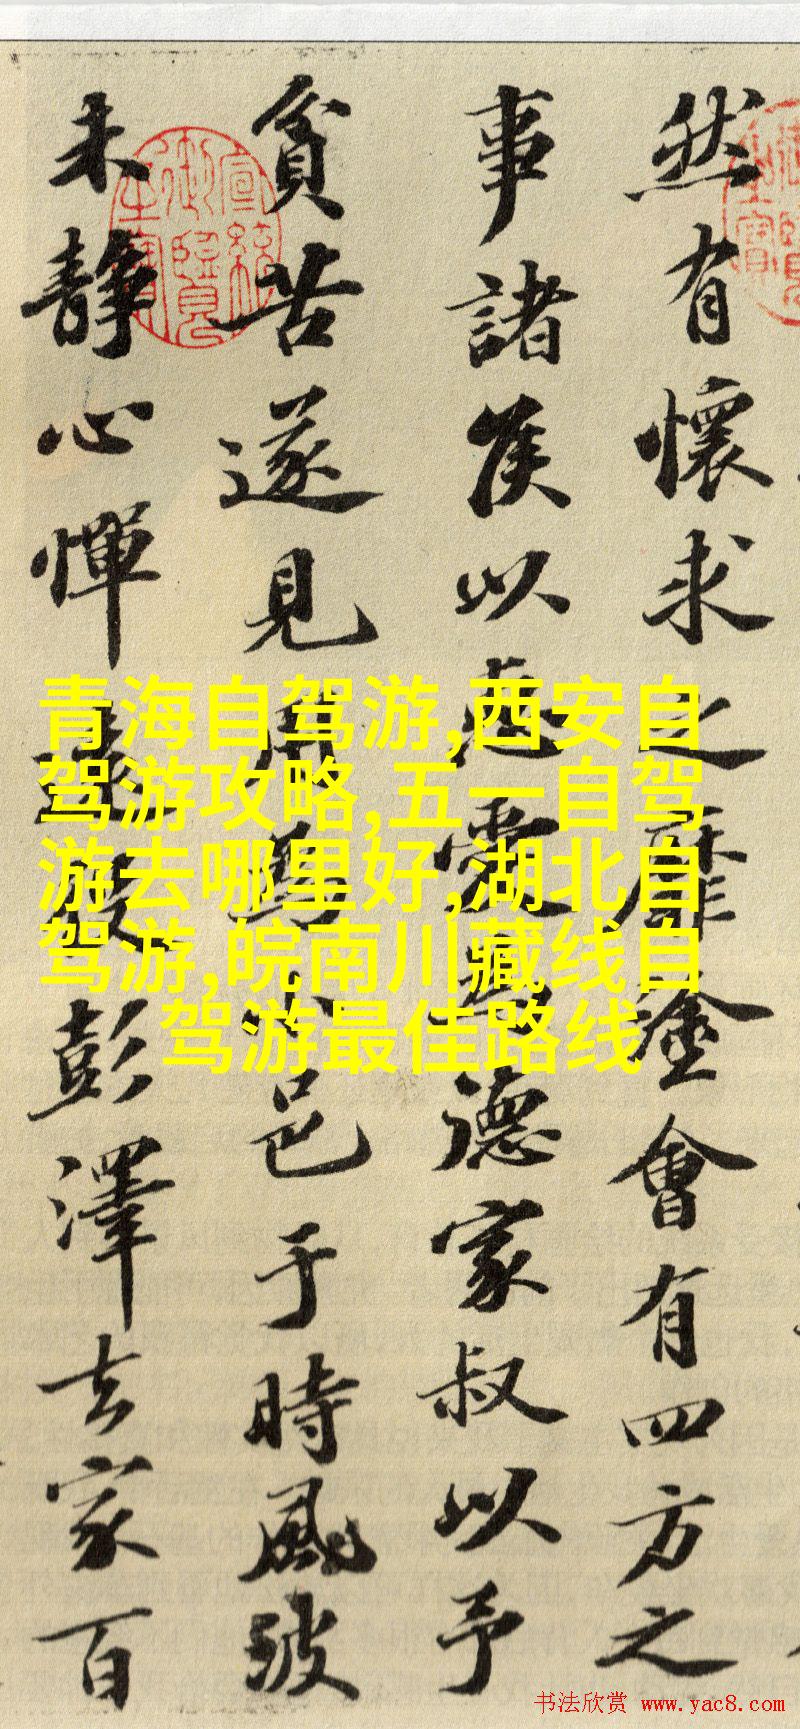 然有懷求之靡塗會有四方之
事諸侯以惠愛為德家叔以予
貧苦遂見用為小邑于時風波
未静心憚遠役彭澤去家百
宣統御覽之寶
青海自驾游,西安自
驾游攻略,五一自驾
游去哪里好,湖北自
驾游,皖南川藏线自
驾游最佳路线
书法欣赏 www.yac8.com